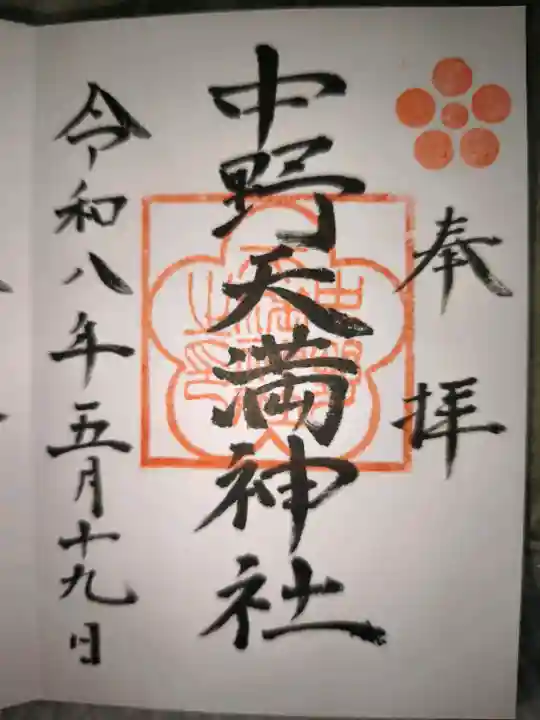 奉拝
中野天満神社
令和八年五月十九日